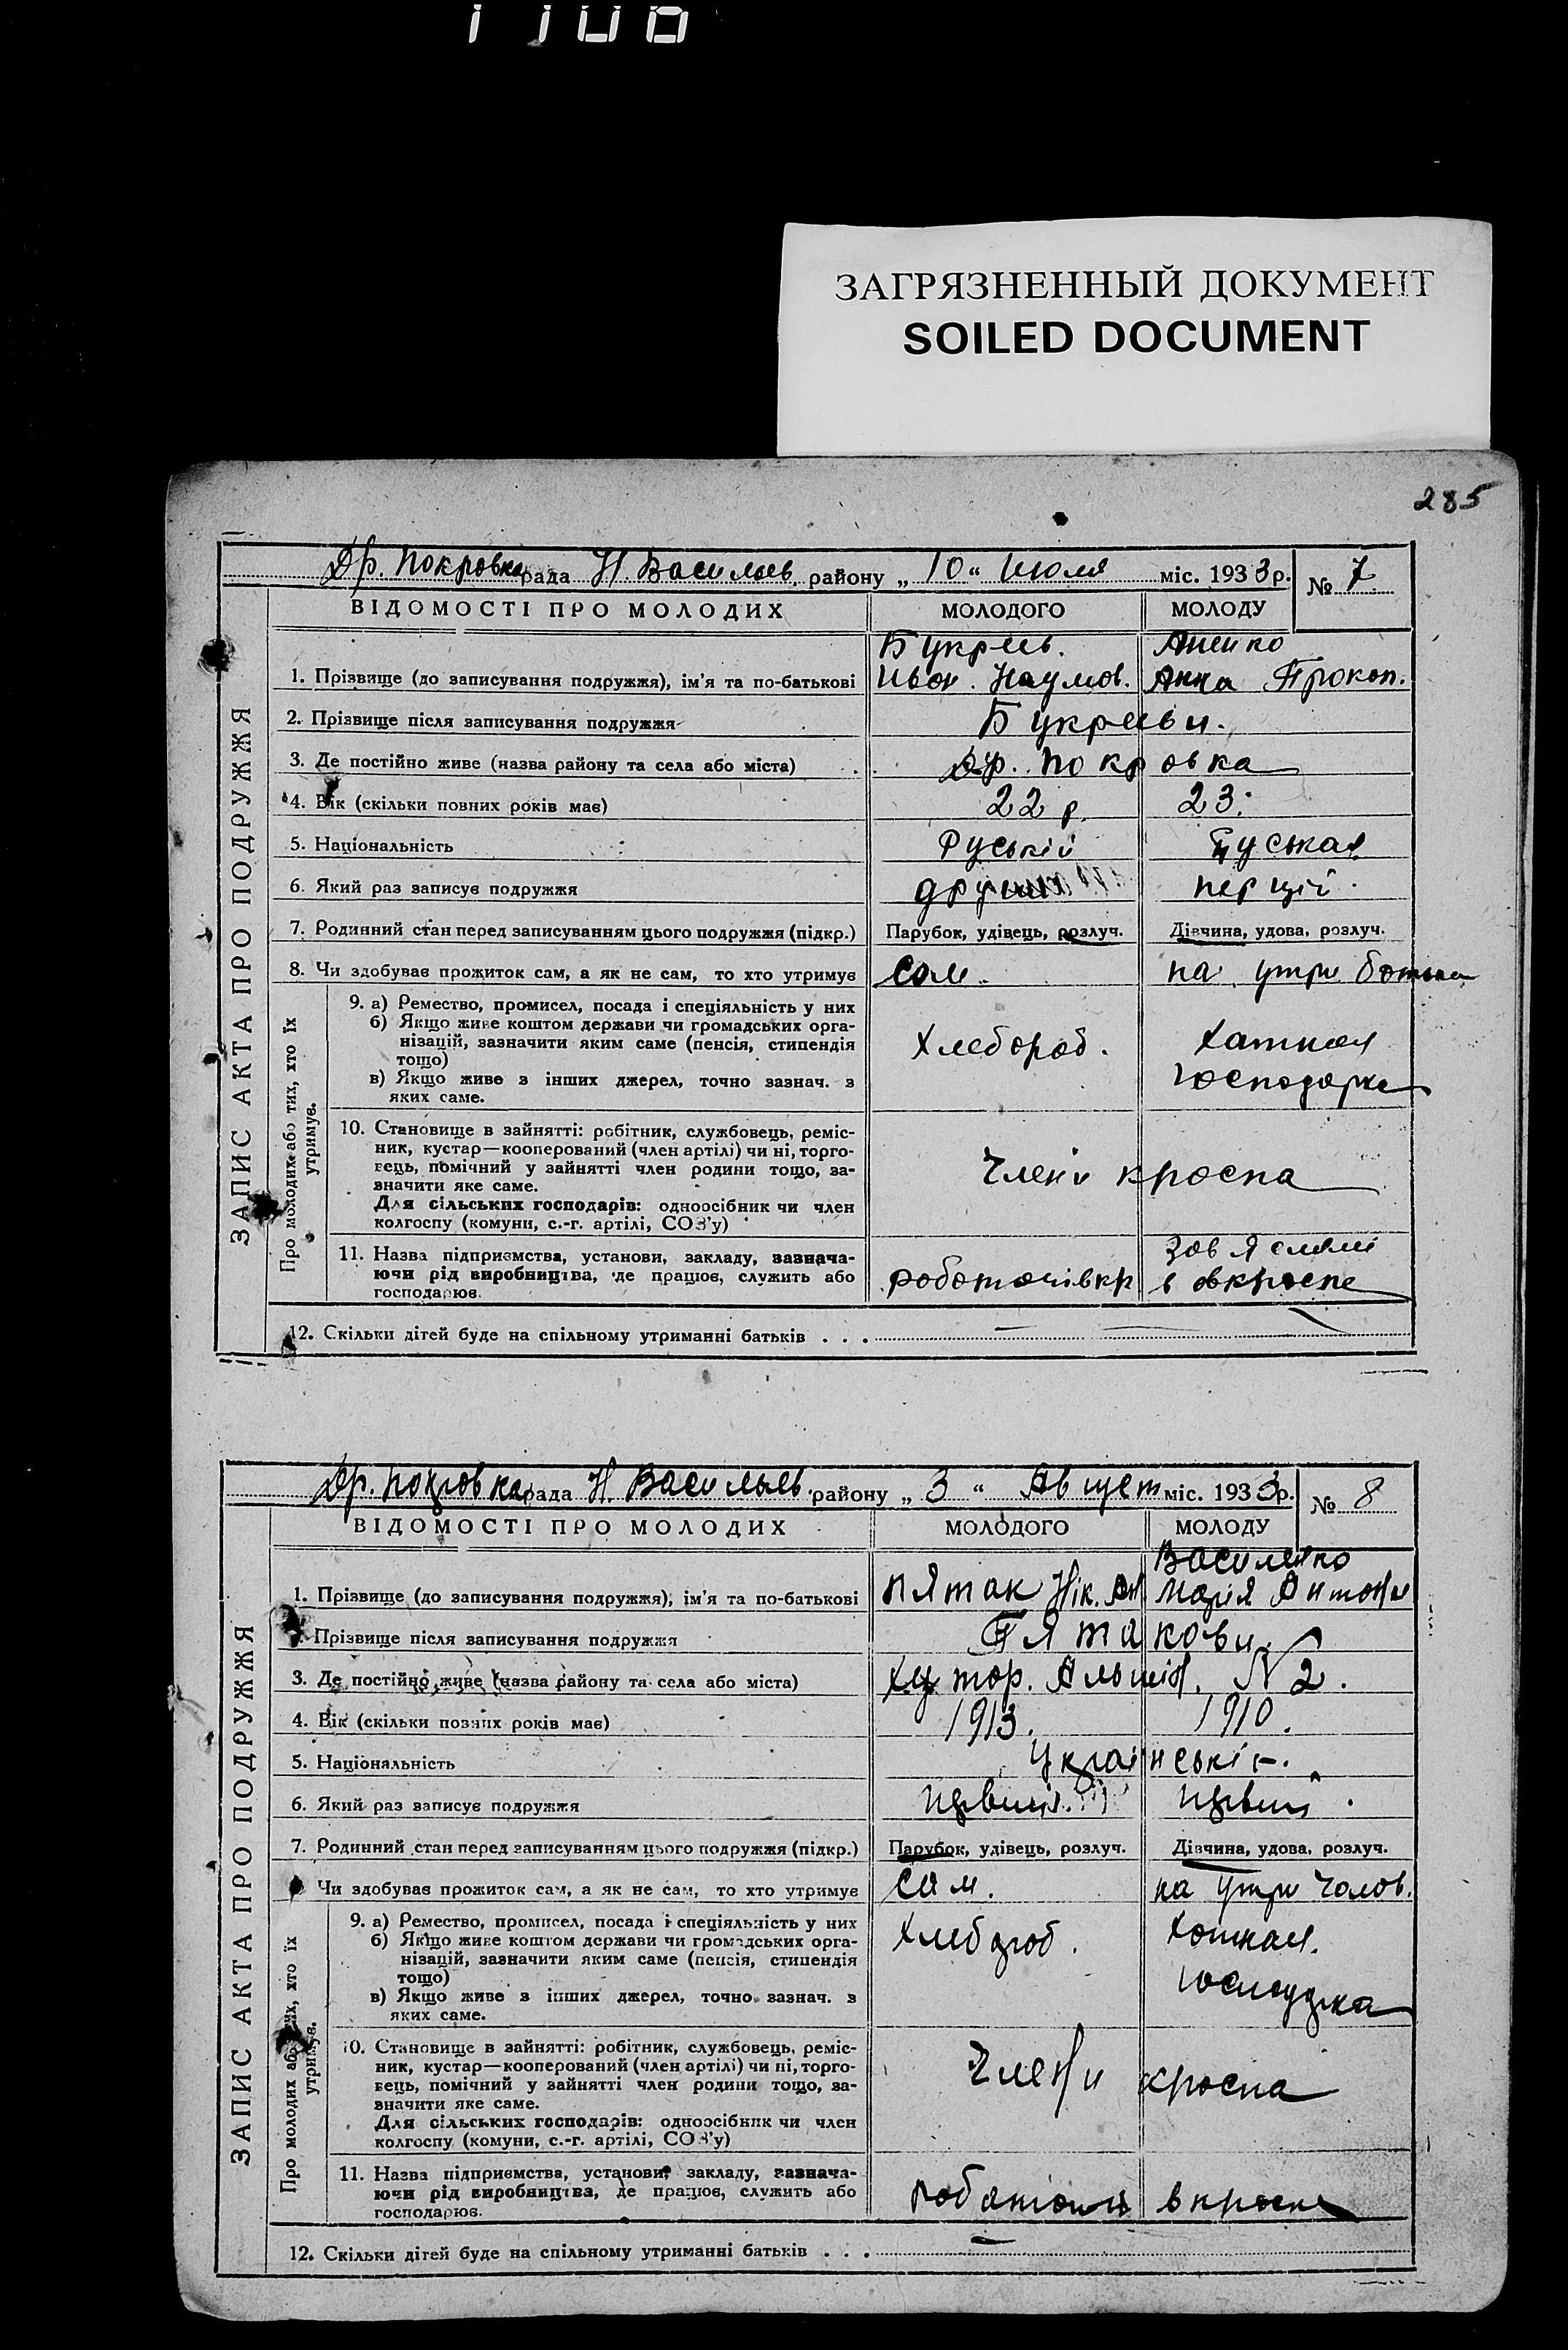 ЗАГРЯЗНЕННЫЙ ДОКУМЕНТ
SOILED DOCUMENT
285
ЗАПИС АКТА ПРО ПОДРУЖЖЯ
Др. Покровка рада Н. Васильев. району „ 10 “ Июля міс. 1933 р. № 7
ВІДОМОСТІ ПРО МОЛОДИХ МОЛОДОГО МОЛОДУ
1. Прізвище (до записування подружжя), ім'я та по-батькові Букреев. Наумов. Анна Прокоп.
2. Прізвище після записування подружжя Букрееви.
3. Де постійно живе (назва району та села або міста) Др. Покровка
4. Вік (скільки повних років має) 22 р. 23.
5. Національність Руській Руськая
6. Який раз записує подружжя перший
7. Родинний стан перед записуванням цього подружжя (підкр.) Парубок, удівець, розлуч. Дівчина, удова, розлуч.
8. Чи здобував прожиток сам, а як не сам, то хто утримує Сам. на утри батька
Про молодих або тих, хто їх
утримує.
9. а) Ремество, промисел, посада і спеціяльність у них
б) Якщо живе коштом держави чи громадських орга-
нізацій, зазначити яким саме (пенсія, стипендія
тощо)
в) Якщо живе з інших джерел, точно зазнач. з
яких саме.
Хлебороб. Хатная
господарка
10. Становище в зайнятті: робітник, службовець, реміс-
ник, кустар—кооперований (член артілі) чи ні, торго-
вець, помічний у зайнятті член родини тощо, за-
значити яке саме.
Для сільських господарів: одноосібник чи член
колгоспу (комуни, с.-г. артілі, СОЗ'у)
Члени
11. Назва підприємства, установи, закладу, зазнача-
ючи рід виробництва, де працює, служить або
господарює.
12. Скільки дітей буде на спільному утриманні батьків . . .
ЗАПИС АКТА ПРО ПОДРУЖЖЯ
Др. Покровка рада Н. Васильев. району „ 3 “ Август міс. 1933 р. № 8
ВІДОМОСТІ ПРО МОЛОДИХ МОЛОДОГО МОЛОДУ
Василенко
1. Прізвище (до записування подружжя), ім'я та по-батькові Пятак Нік. Ан Марія Антони
Прізвище після записування подружжя Пятакови.
3. Де постійно живе (назва району та села або міста) Хутор. N 2.
4. Вік (скільки повних років має) 1913. 1910.
5. Національність
6. Який раз записує подружжя
7. Родинний стан перед записуванням цього подружжя (підкр.) Парубок, удівець, розлуч. Дівчина, удова, розлуч.
Чи здобував прожиток сам, а як не сам, то хто утримує Сам. на утри чолов.
Про молодих або тих, хто їх
утримує.
9. а) Ремество, промисел, посада і спеціяльність у них
б) Якщо живе коштом держави чи громадських орга-
нізацій, зазначити яким саме (пенсія, стипендія
тощо)
в) Якщо живе з інших джерел, точно зазнач. з
яких саме.
Хлебороб. Хатная.
10. Становище в зайнятті: робітник, службовець, реміс-
ник, кустар—кооперований (член артілі) чи ні, торго-
вець, помічний у зайнятті член родини тощо, за-
значити яке саме.
Для сільських господарів: одноосібник чи член
колгоспу (комуни, с.-г. артілі, СОЗ'у)
Члени
11. Назва підприємства, установи, закладу, зазнача-
ючи рід виробництва, де працює, служить або
господарює.
12. Скільки дітей буде на спільному утриманні батьків . . .